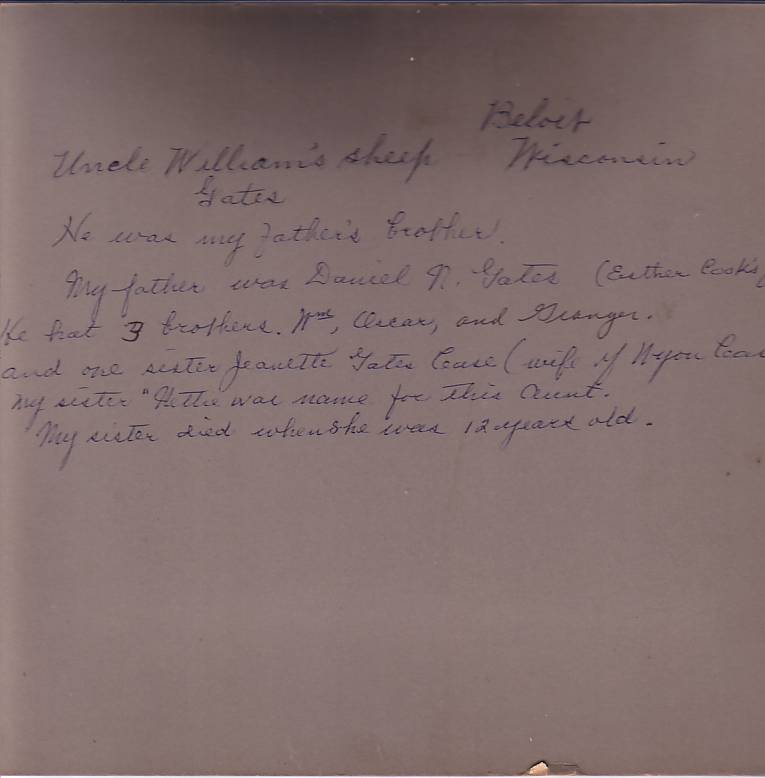 Beloit
Uncle William's sheep Wisconsin
Gates
He was my father's brother.
My father was Daniel N. Gates (Esther Cook's
He hat 3 brothers. Wm, Oscar, and Granger.
and one sister Jeanette Gates Case (wife of
My sister "Nettie was name for this Aunt.
My sister died when she was 12 years old.